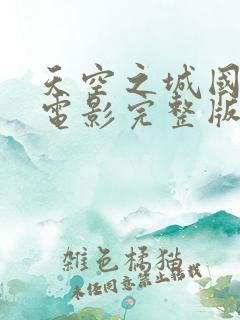 天空之城國
電影完整版
雜色橘猫
未经同意禁止转载